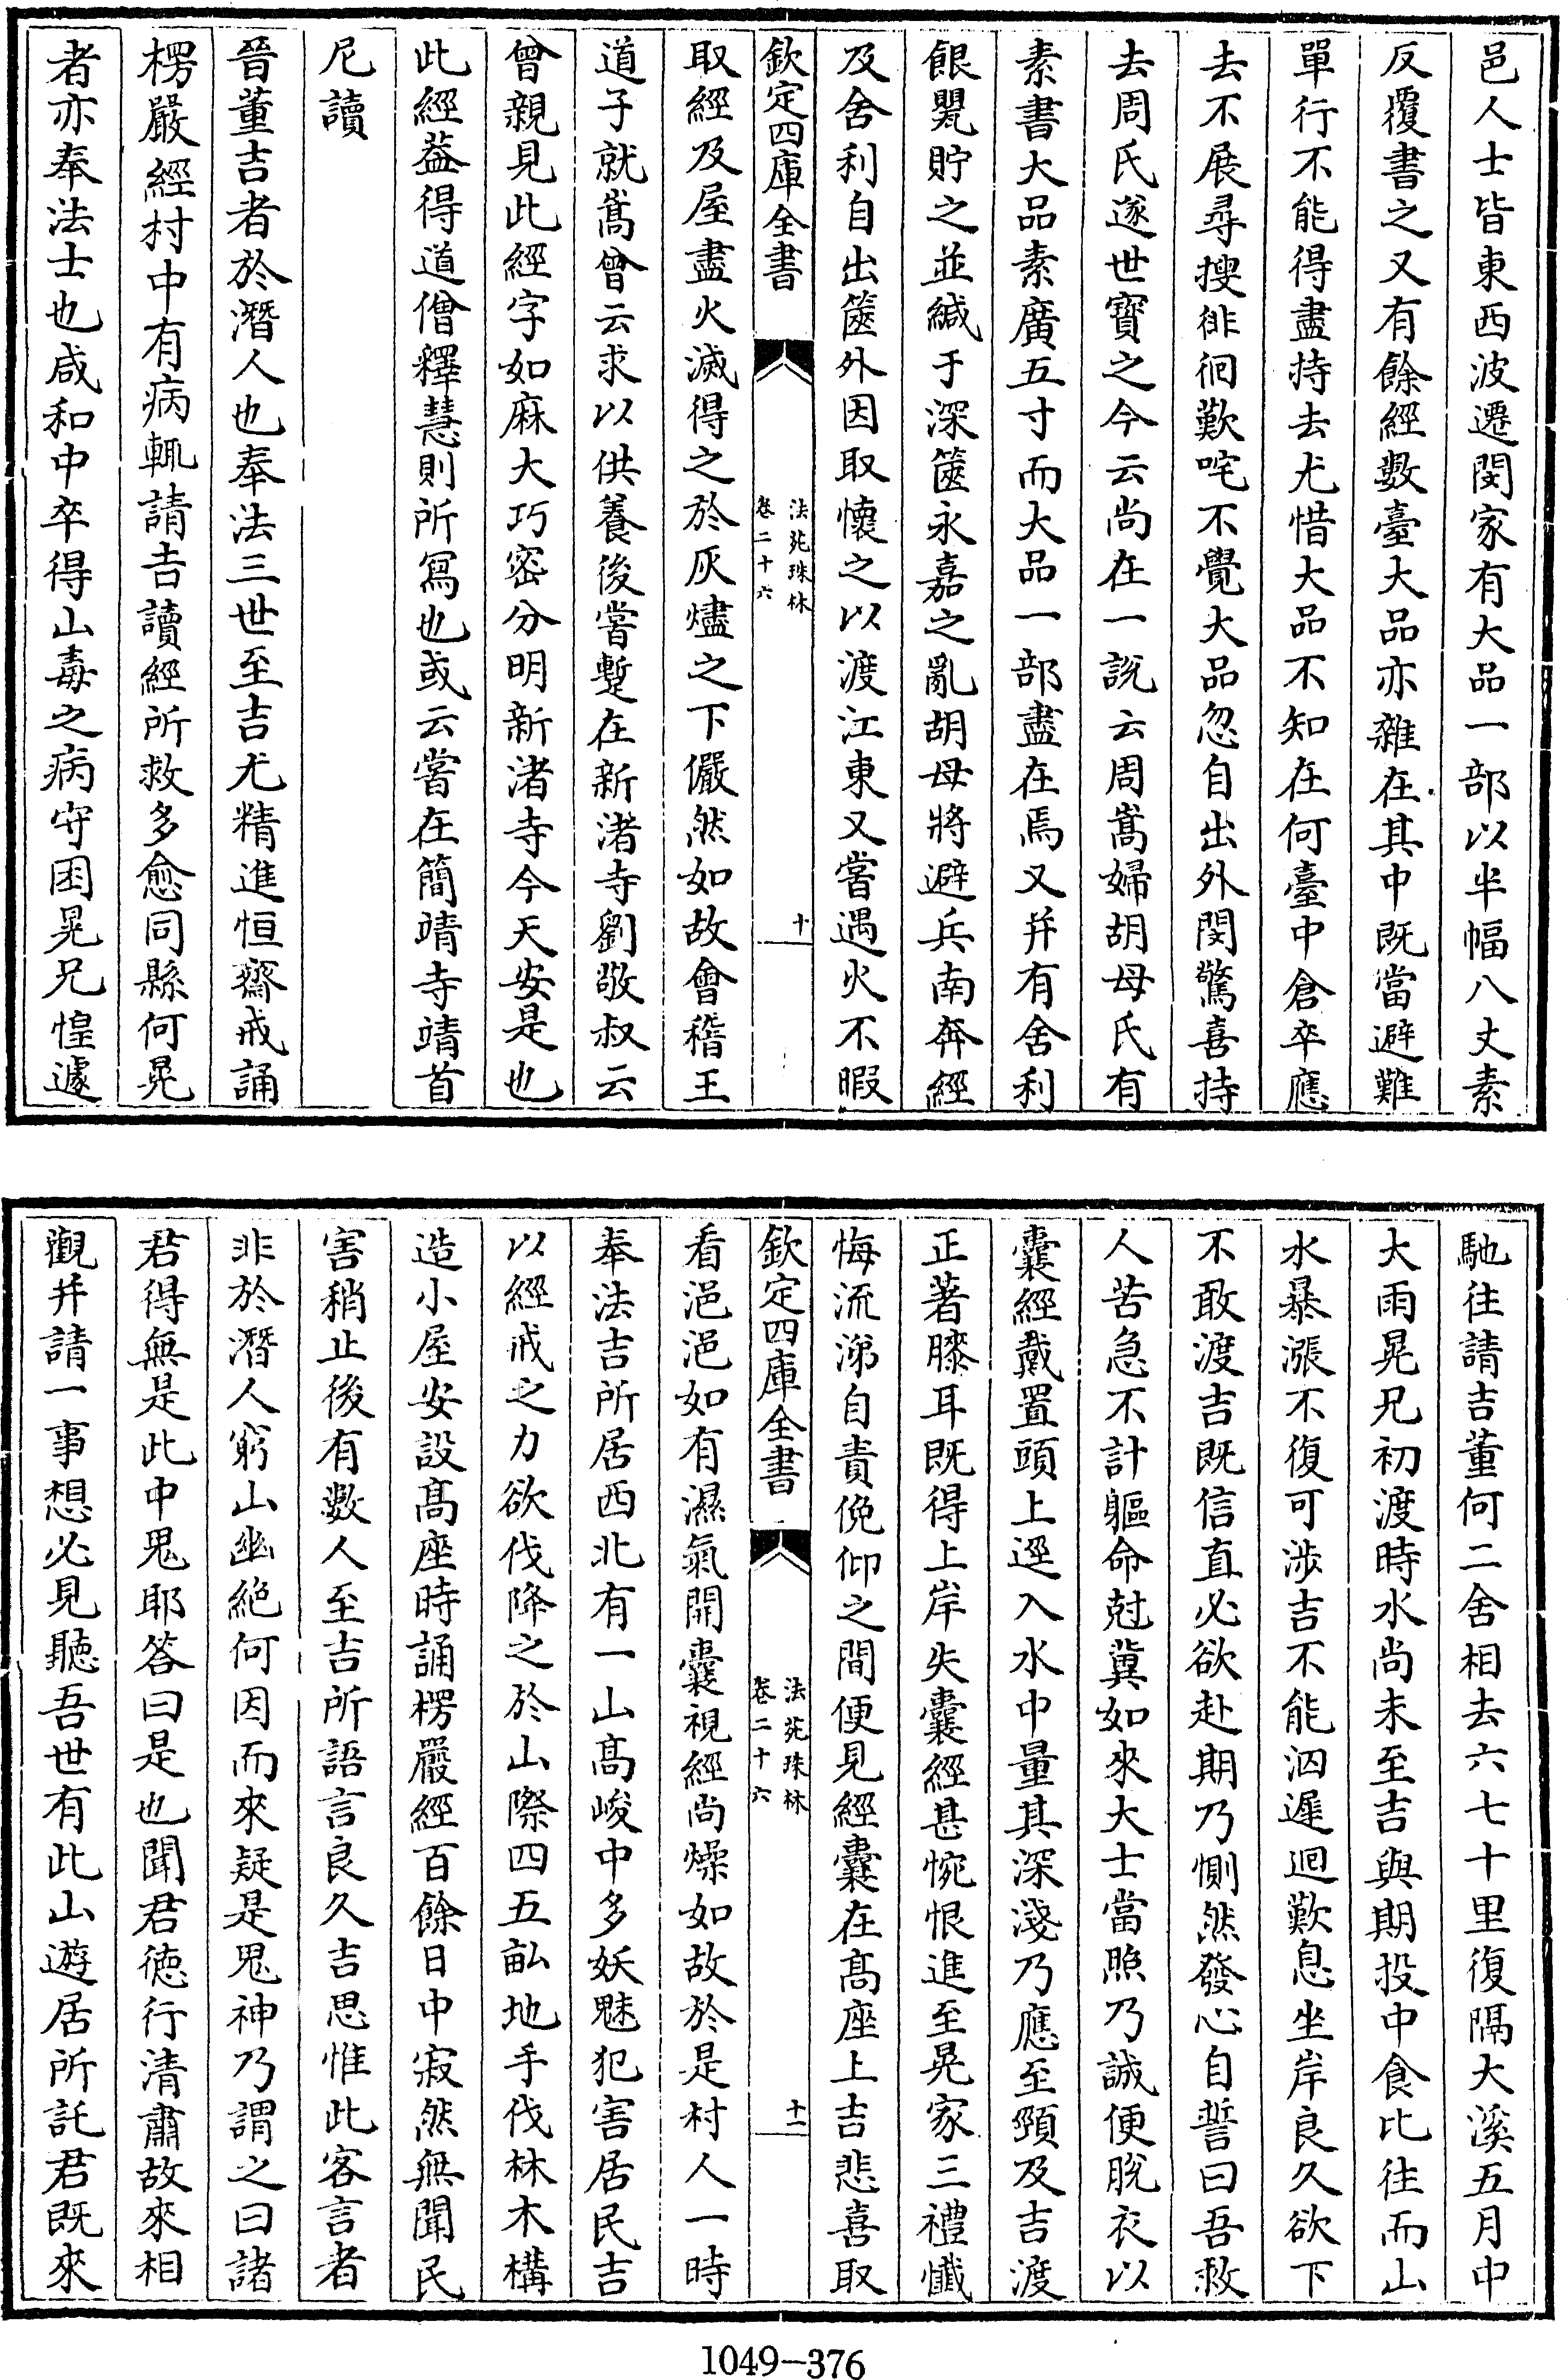 邑人士皆東西波遷閔家有大品一部以半幅八丈素
反覆書之又有餘經數臺大品亦雜在其中既當避難
單行不能得盡持去尤惜大品不知在何臺中倉卒應
去不展尋搜徘徊歎咤不覺大品忽自出外閔驚喜持
去周氏遂世寳之今云尚在一説云周嵩婦胡母氏有
素書大品素廣五寸而大品一部盡在焉又并有舍利
銀甖貯之並緘于深篋永嘉之亂胡母將避兵南奔經
及舍利自出篋外因取懷之以渡江東又嘗遇火不暇
欽定四庫全書
法苑珠林
卷二十六
十
取經及屋盡火滅得之於灰燼之下儼然如故會稽王
道子就嵩曾云求以供養後嘗蹔在新渚寺劉敬叔云
曾親見此經字如麻大巧密分明新渚寺今天安是也
此經葢得道僧釋慧則所寫也或云嘗在簡靖寺靖首
尼讀
晉董吉者於潛人也奉法三世至吉尤精進恒齋戒誦
楞嚴經村中有病輒請吉讀經所救多愈同縣何晃
者亦奉法士也咸和中卒得山毒之病守困晃兄惶遽
馳往請吉董何二舍相去六七十里復隔大溪五月中
大雨晃兄初渡時水尚未至吉與期投中食比往而山
水暴漲不復可涉吉不能泅遲迴歎息坐岸良久欲下
不敢渡吉既信直必欲赴期乃惻然發心自誓曰吾救
人苦急不計軀命尅冀如來大士當照乃誠便脫衣以
囊經戴置頭上逕入水中量其深淺乃應至頸及吉渡
正著膝耳既得上岸失囊經甚惋恨進至晃家三禮懺
悔流涕自責俛仰之間便見經囊在髙座上吉悲喜取
欽定四庫全書
法苑珠林
卷二十六
十一
看浥浥如有濕氣開囊視經尚燥如故於是村人一時
奉法吉所居西北有一山髙峻中多妖魅犯害居民吉
以經戒之力欲伐降之於山際四五畝地手伐林木構
造小屋安設髙座時誦楞嚴經百餘日中寂然無聞民
害稍止後有數人至吉所語言良久吉思惟此客言者
非於潛人窮山幽絶何因而來疑是鬼神乃謂之曰諸
君得無是此中鬼耶答曰是也聞君德行清肅故來相
觀并請一事想必見聽吾世有此山遊居所託君既來
1049-376